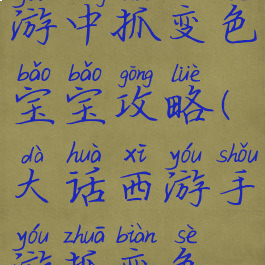 游中抓变色
bǎo bǎo gōng lüè
宝宝攻略(
dà huà xī yóu shǒu
大话西游手
yóu zhuā biàn sè
游抓变色